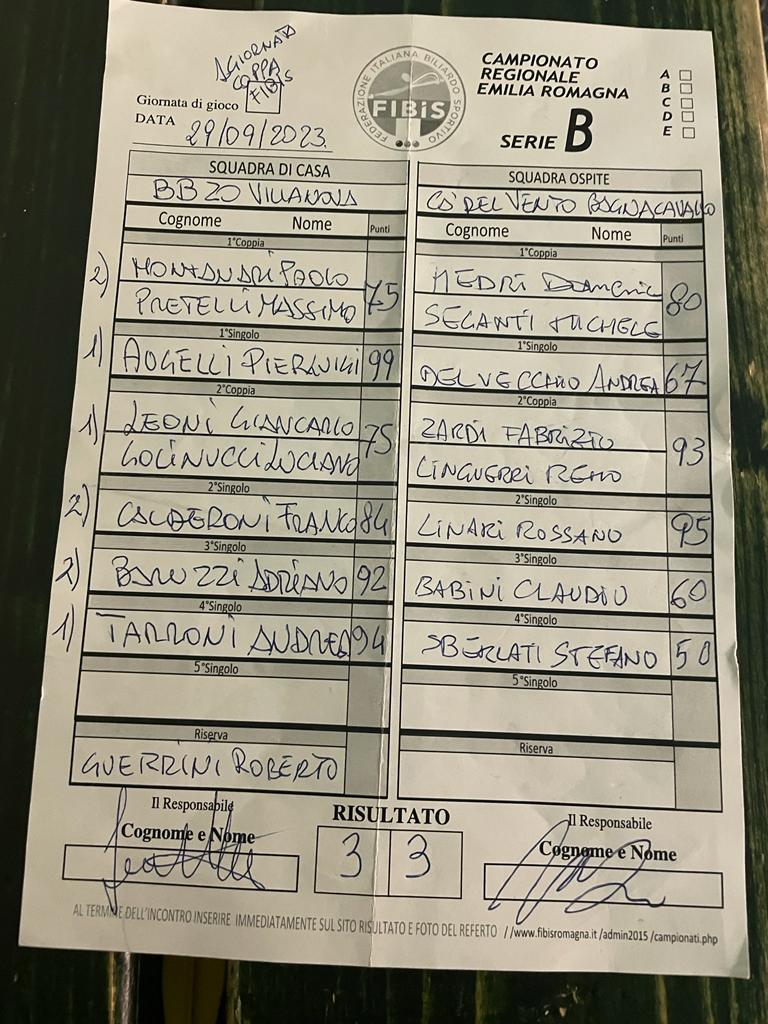 GIORNATA
COPPA
FIBIS
Giornata di gioco
DATA 29/09/2023
FEDERAZIONE ITALIANA BILIARDO SPORTIVO
FIBiS
CAMPIONATO
REGIONALE
EMILIA ROMAGNA
SERIE B
A
B
C
D
E
SQUADRA DI CASA
BBZO VILLANOVA
Cognome Nome Punti
1°Coppia
2) MONTANARI PAOLO
PRETELLI MASSIMO 75
1°Singolo
1) ANGELLI PIERLUIGI 99
2°Coppia
1) LEONI GIANCARLO
GOLINUCCI LUCIANO 75
2°Singolo
2) CALDERONI FRANCO 84
3°Singolo
2) BARUZZI ADRIANO 92
4°Singolo
1) TARRONI ANDREA 94
5°Singolo
Riserva
GUERRINI ROBERTO
SQUADRA OSPITE
CA' DEL VENTO BAGNACAVALLO
Cognome Nome Punti
1°Coppia
MEDRI
SEGANTI MICHELE 80
1°Singolo
DELVECCHIO ANDREA 67
2°Coppia
ZARDI FABRIZIO
LINGUERRI REMO 93
2°Singolo
LINARI ROSSANO 95
3°Singolo
BABINI CLAUDIO 60
4°Singolo
SBERLATI STEFANO 50
5°Singolo
Riserva
Il Responsabile
Cognome e Nome
RISULTATO
3 3
Il Responsabile
Cognome e Nome
AL TERMINE DELL'INCONTRO INSERIRE IMMEDIATAMENTE SUL SITO RISULTATO E FOTO DEL REFERTO //www.fibisromagna.it /admin2015 /campionati.php